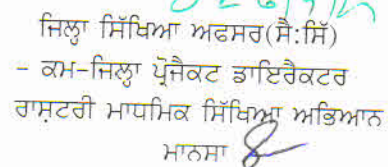 ਜਿਲ੍ਹਾ ਸਿੱਖਿਆ ਅਫਸਰ(ਸੈ:ਸਿੱ)
– ਕਮ-ਜਿਲ੍ਹਾ ਪ੍ਰੋਜੈਕਟ ਡਾਇਰੈਕਟਰ
ਰਾਸ਼ਟਰੀ ਮਾਧਮਿਕ ਸਿੱਖਿਆ ਅਭਿਆਨ
ਮਾਨਸਾ